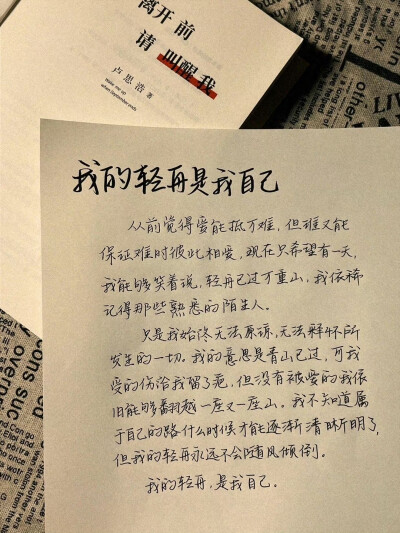 离开前
请叫醒我
卢思浩 著
wake me up
when September ends
我的轻舟是我自己
从前觉得爱能抵万难，但谁又能
保证难时彼此相爱，现在只希望有一天，
我能够笑着说，轻舟已过万重山，我依稀
记得那些熟悉的陌生人。
只是我始终无法原谅，无法释怀所
发生的一切。我的意思是青山已过，可我
受的伤给我留了疤，但没有被爱的我依
旧能够翻越一座又一座山。我不知道属
于自己的路什么时候才能逐渐清晰明了，
但我的轻舟永远不会随风倾倒。
我的轻舟，是我自己。